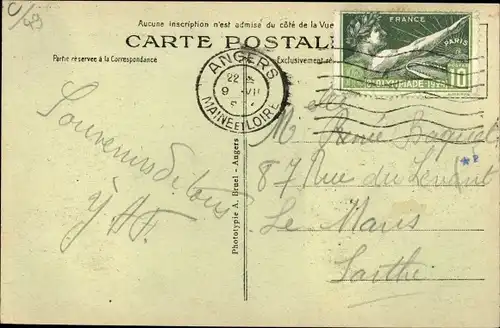 Aucune inscription n'est admise du côté de la Vue
CARTE POSTAL
Partie réservée à la Correspondance
Exclusivement ré
ANGERS
22
9 VII
MAINE ET LOIRE
FRANCE
PARIS
10
OLYMPIADE 192
Souvenirs de tous
M
87 Rue du Levant
Le Mans
Sarthe
Phototypie A. Bruel - Angers